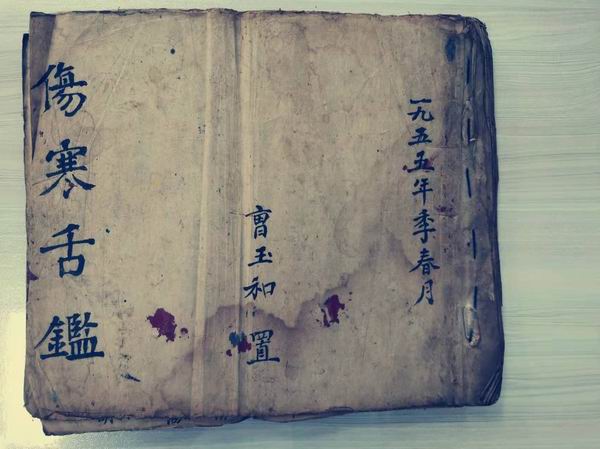 一九五五年季春月
曺玉和 置
傷寒舌鑑